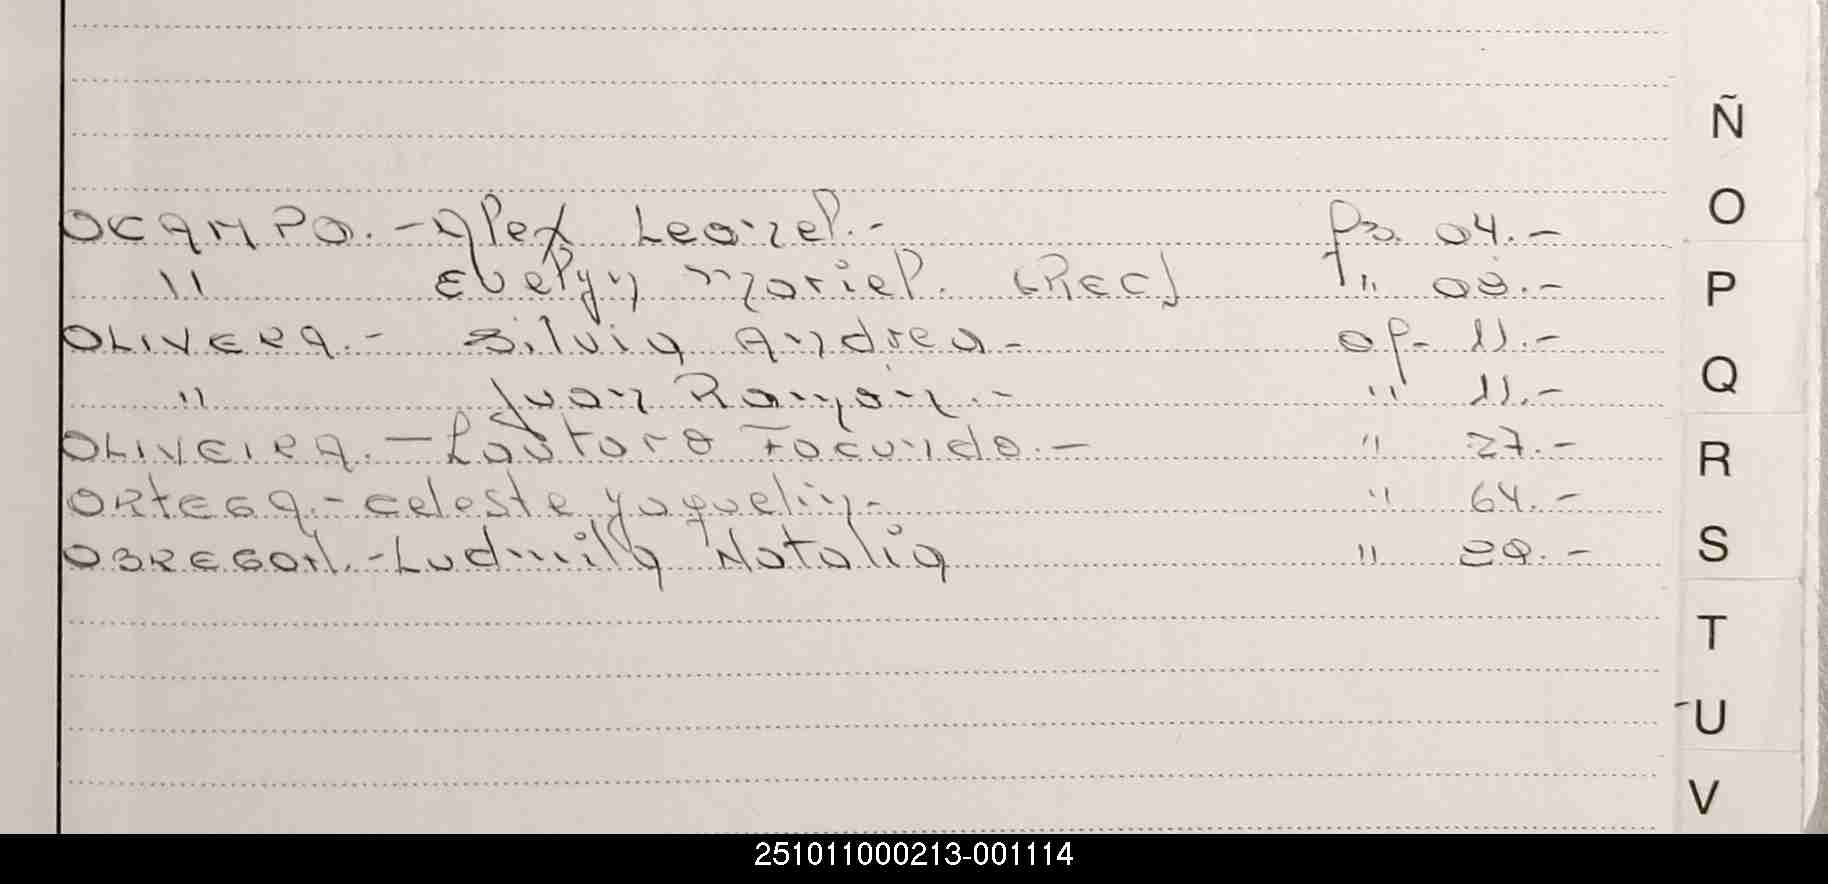 OCAMPO.- Alex Leonel.- Fo. 04.-
" Evelyn Mariel. (REC) " 08.-
OLIVERA.- Silvia Andrea- af- 11.-
" Juan Ramón.- " 11.-
OLIVEIRA.- Lautaro Facundo.- " 27.-
ORTEGA.- Celeste Yaquelin- " 64.-
OBREGON.- Ludmila Natalia " 29.-
Ñ
O
P
Q
R
S
T
U
V
251011000213-001114